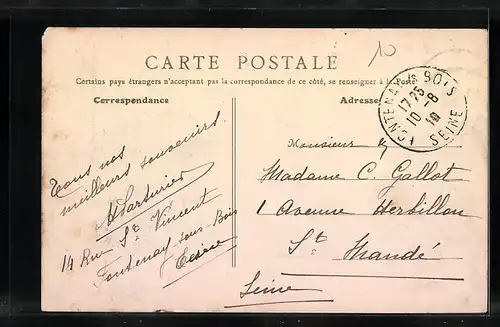 10
CARTE POSTALE
Certains pays étrangers n'acceptant pas la correspondance de ce côté, se renseigner à la Poste
Correspondance
Adresse
FONTENAY s BOIS
17 25
10 - 8
10
SEINE
Tous nos
meilleurs souvenirs.
14 Rue St Vincent
Fontenay sous-Bois
Seine
Monsieur &
Madame C. Gallot
1 Avenue Herbillon
St Mandé
Seine